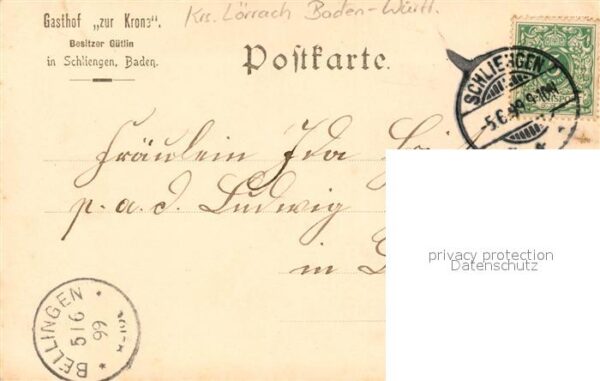 Gasthof „zur Krone".
Besitzer Gütlin
in Schliengen, Baden.
Krs. Lörrach Baden-Württ.
Postkarte.
SCHLIENGEN
-5.6.99.9-10N
Fräulein Ida
p. a. d. Ludwig
in
privacy protection
Datenschutz
BELLINGEN
5 6
99